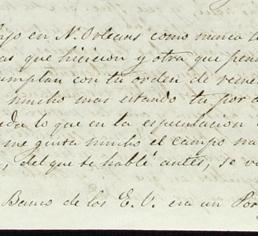 en N. Orleans como nunca
as que hicieron y otra que
con tu orden de
mucho mas estando tu por
lo que en la especulacion
me gusta mucho el campo
del que te hablé antes, se
Banco de los E. U. era un